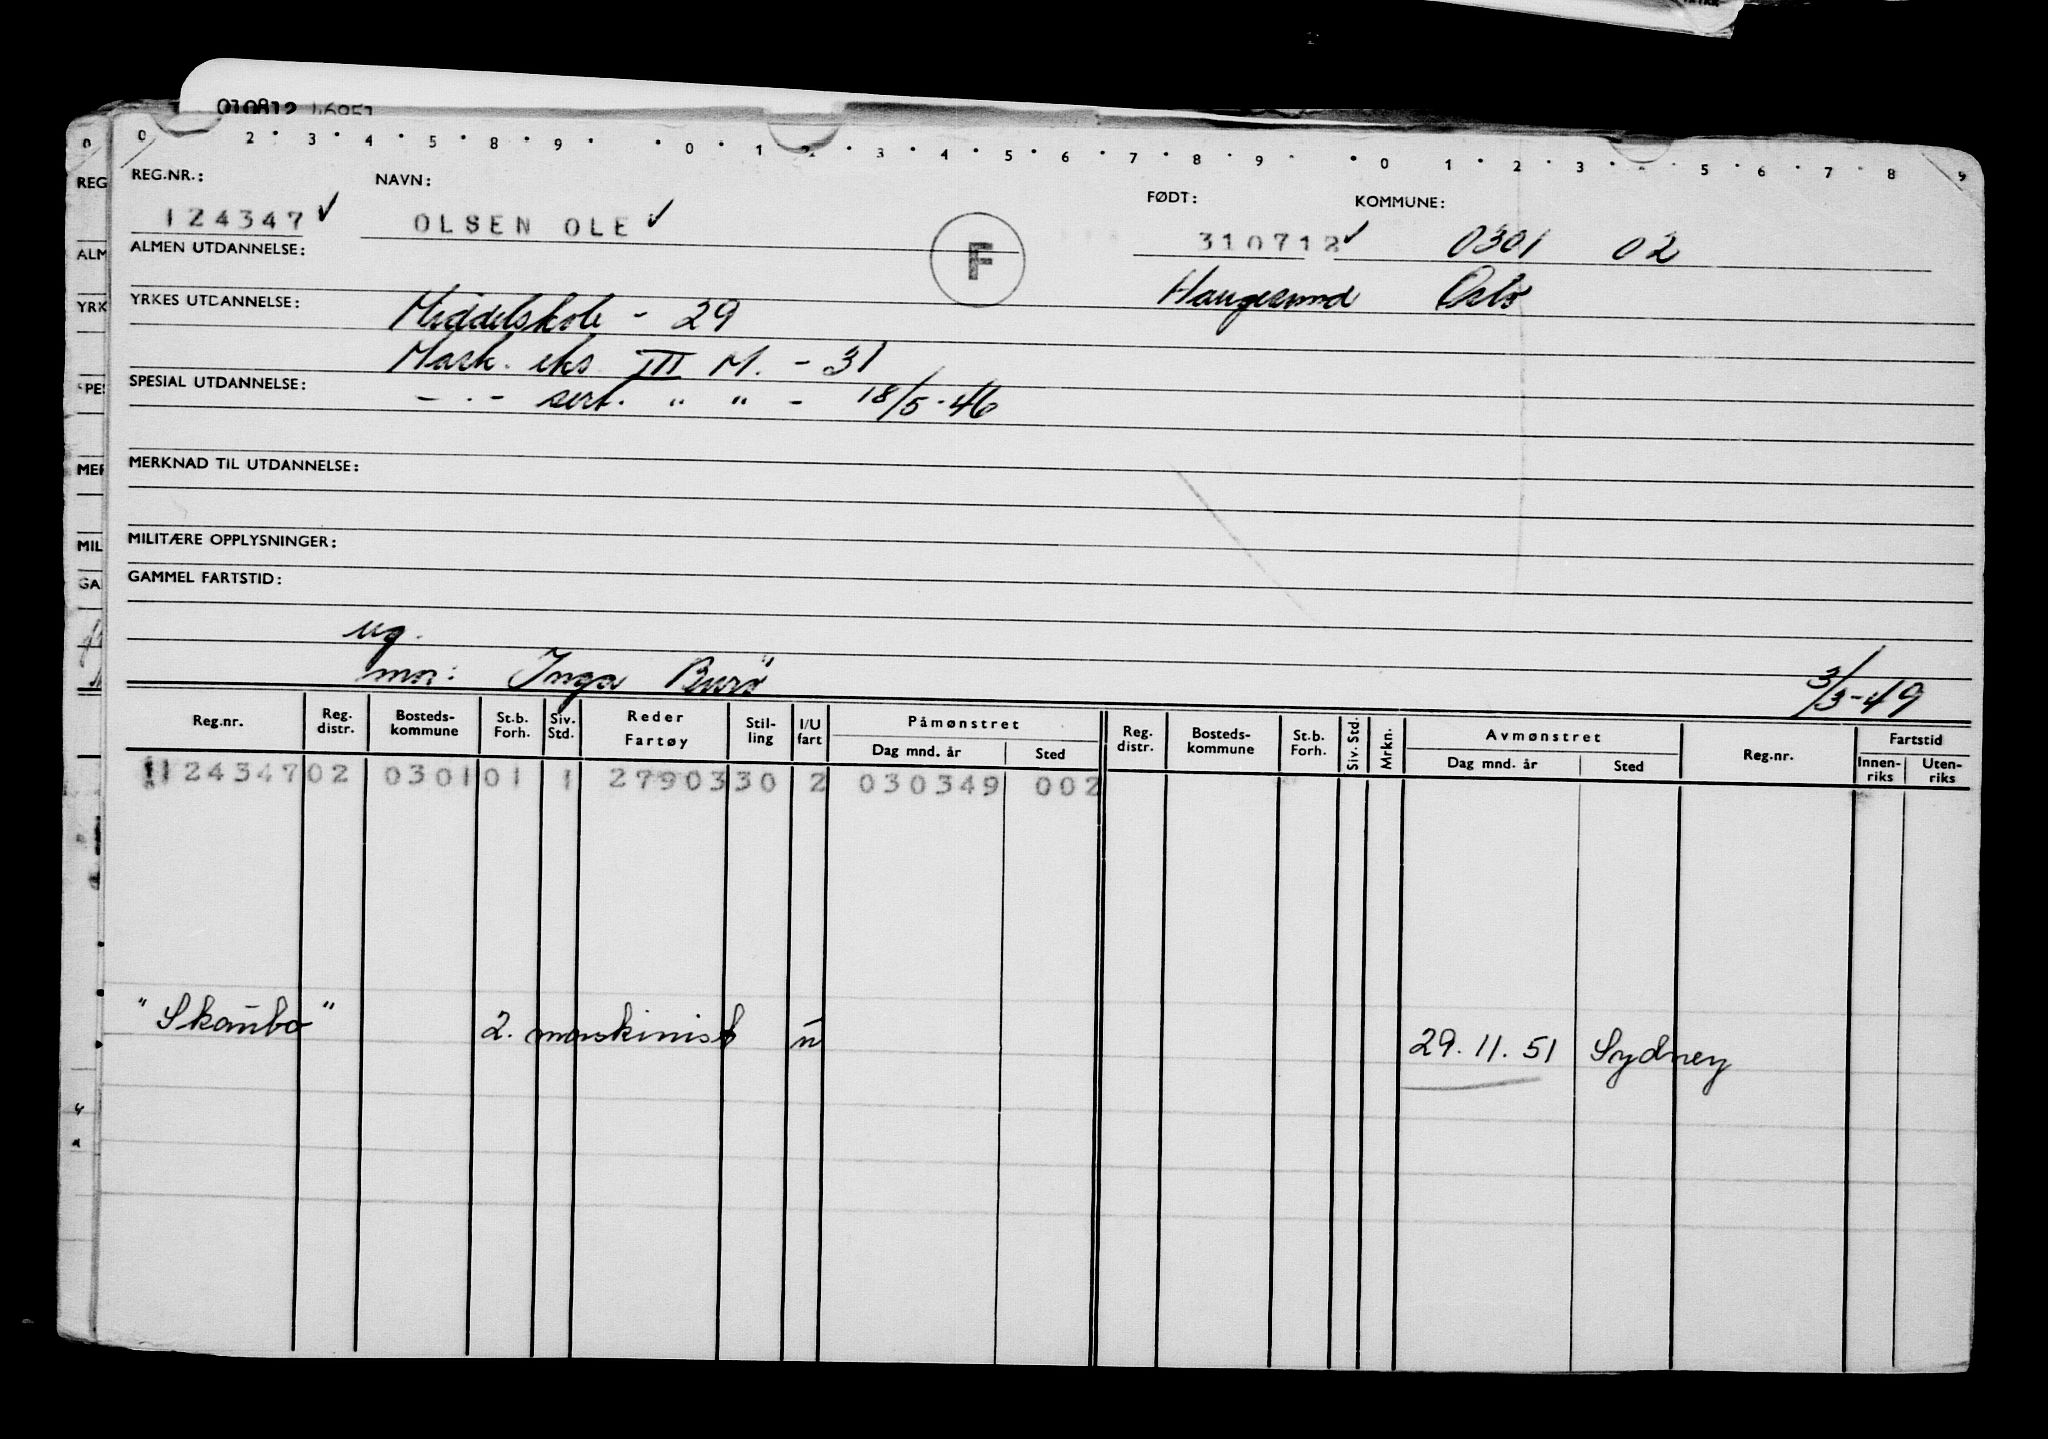 010812 46951
0 2 3 4 5 8 9 0 1 2 3 4 5 6 7 8 9 0 1 2 3 5 6 7 8 9
REG.NR.: NAVN: FØDT: KOMMUNE:
124347 ✓ OLSEN OLE ✓ F 310712 ✓ 0301 02
ALMEN UTDANNELSE: Haugesund Oslo
YRKES UTDANNELSE: Middelskole - 29
Mask. eks III M. - 31
SPESIAL UTDANNELSE: - . - sert. " " - 18/5-46
MERKNAD TIL UTDANNELSE:
MILITÆRE OPPLYSNINGER:
GAMMEL FARTSTID:
ug.
mor: Inga Burø 3/3-49
Reg.nr. Reg. distr. Bosteds- kommune St.b. Forh. Siv. Std. Reder Fartøy Stil- ling I/U fart Påmønstret Dag mnd. år Sted Reg. distr. Bosteds- kommune St.b. Forh. Siv. Std. Mrkn. Avmønstret Dag mnd. år Sted Reg.nr. Fartstid Innen- riks Uten- riks
124347 02 0301 01 1 27903 30 2 030349 002
"Skaubo" 2. maskinist u 29.11.51 Sydney